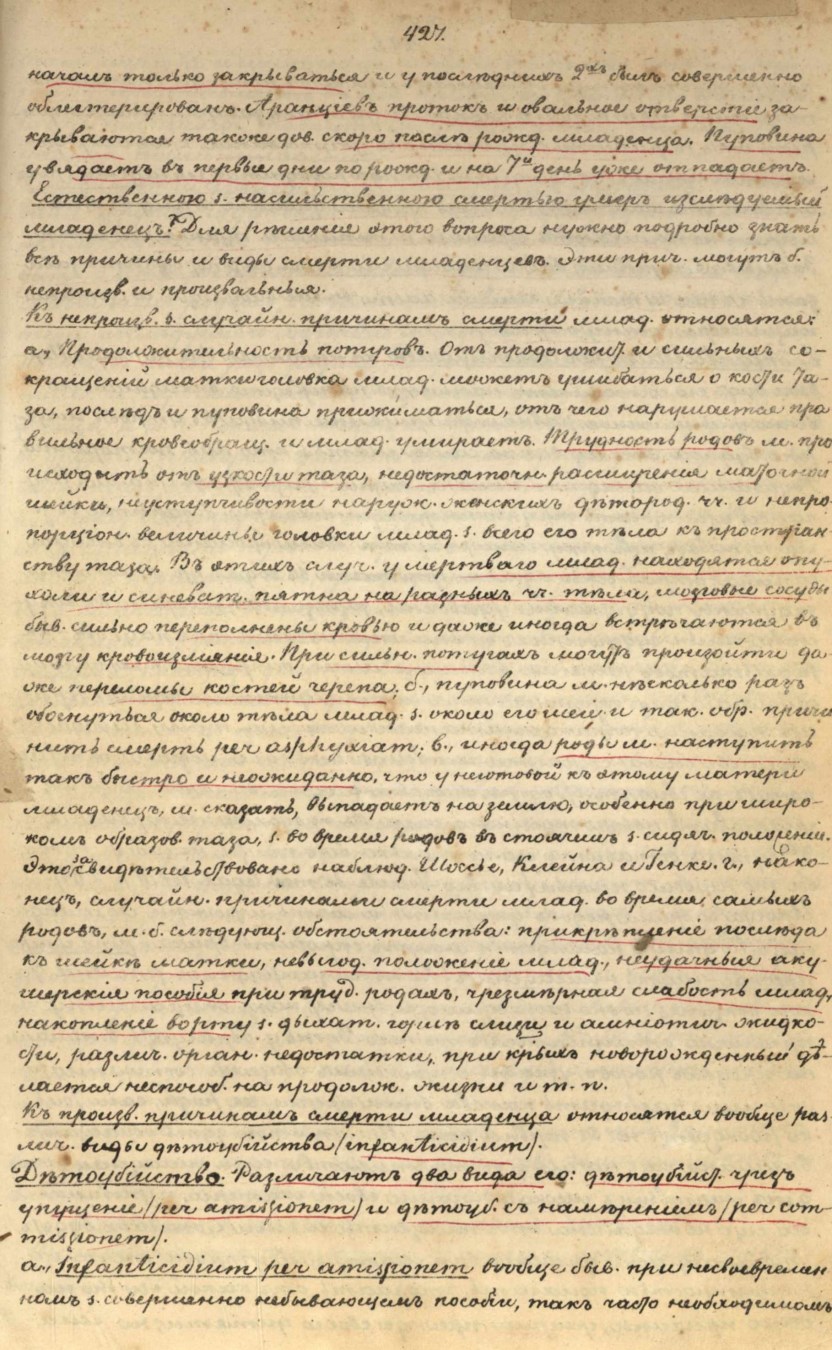 427.
началъ только закрываться и у послѣднихъ 2хъ былъ совершенно
облитерированъ. Аранціевъ протокъ и овальное отверстіе за-
крываются также дов. скоро послѣ рожд. младенца. Пуповина
увядаетъ въ первые дни по рожд. и на 7й день уже отпадаетъ.
Естественною s. насильственною смертью умеръ изслѣдуемый
младенецъ? Для рѣшенія этого вопроса нужно подробно знать
всѣ причины и виды смерти младенцевъ. Эти прич. могутъ б.
непроизв. и произвальныя.
Къ непроизв. s. случайн. причинамъ смерти млад. относятся:
а, Продолжительность потуговъ. Отъ продолжит. и сильныхъ со-
кращеній матки головка млад. можетъ ушибаться о кости та-
за, послѣдъ и пуповина прижиматься, отъ чего нарушается пра
вильное кровообращ. и млад. умираетъ. Трудность родовъ м. про
исходить отъ узкости таза, недостаточн. расширенія маточной
шейки, неуступчивости наруж. женскихъ дѣтород. чч. и непро-
порціон. величины головки млад. s. всего его тѣла къ простран-
ству таза. Въ этихъ случ. у мертваго млад. находятся опу-
холи и синеват. пятна на разныхъ чч. тѣла, мозговые сосуды
быв. сильно переполнены кровью и даже иногда встрѣчаются въ
мозгу кровоизліянія. При сильн. потугахъ могутъ произойти да
же переломы костей черепа. б., пуповина м. нѣсколько разъ
обогнуться около тѣла млад. s. около его шеи и так. обр. причи
нить смерть per asphyxiam; в., иногда роды м. наступить
такъ быстро и неожиданно, что у неготовой къ этому матери
младенецъ, м. сказать, выпадаетъ на землю, особенно при широ-
комъ образов. таза, s. во время родовъ въ стоячемъ s. сидяч. положеніи.
Это засвидѣтельствовано наблюд. Шосье, Клейна и Генке. г., нако-
нецъ, случайн. причинами смерти млад. во время самыхъ
родовъ, м. б. слѣдующ. обстоятельства: прикрѣпленіе послѣда
къ шейкѣ матки, невыгод. положеніе млад., неудачныя аку-
шерскія пособія при труд. родахъ, чрезмѣрная слабость млад,
накопленіе во рту s. дыхат. горлѣ слизи и амніотич. жидко-
сти, различ. орган. недостатки, при крыхъ новорожденный дѣ-
лается неспособ. на продолж. жизни и т. п.
Къ произв. причинамъ смерти младенца относятся вообще раз
лич. виды дѣтоубійства /infanticidium/.
Дѣтоубійство. Различаютъ два вида его: дѣтоубійст. чрезъ
упущеніе /per amissionem/ и дѣтоуб. съ намѣреніемъ /per com-
missionem/.
а., Infanticidium per amissionem вообще быв. при несвоевремен
номъ s. совершенно небывающемъ пособіи, такъ часто необходимомъ